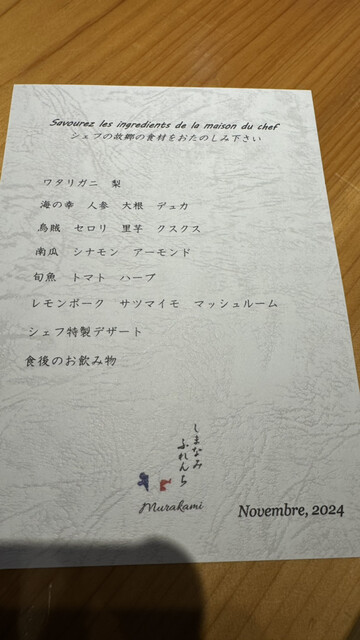 Savourez les ingredients de la maison du chef
シェフの故郷の食材をおたのしみ下さい
ワタリガニ 梨
海の幸 人参 大根 デュカ
烏賊 セロリ 里芋 クスクス
南瓜 シナモン アーモンド
旬魚 トマト ハーブ
レモンポーク サツマイモ マッシュルーム
シェフ特製デザート
食後のお飲み物
しまなみ
ふれんち
Murakami
Novembre, 2024